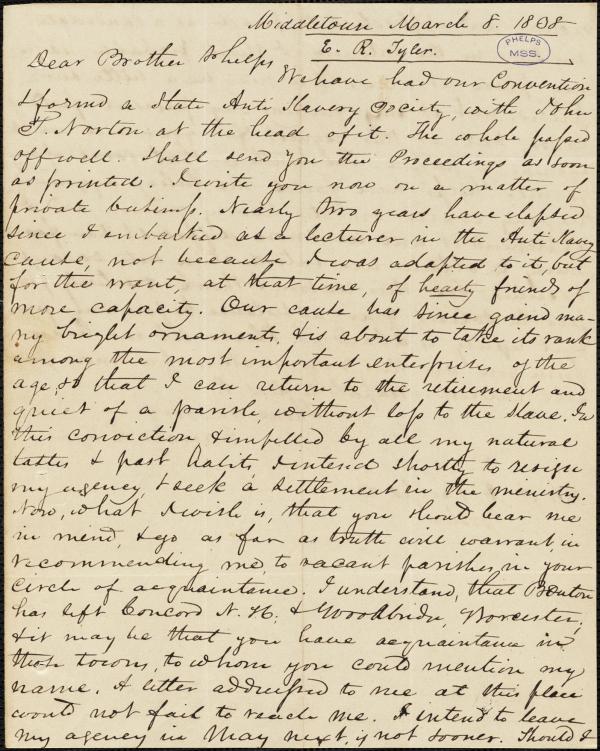 Middletown March 8. 1838
E. R. Tyler.
PHELPS MSS.
Dear Brother Phelps
We have had our Convention
& formd a State Anti Slavery Society, with John
T. Norton at the head of it. The whole passed
off well. Shall send you the Proceedings as soon
as printed. I write you now on a matter of
private business. Nearly two years have elapsed
since I embarked as a lecturer in the Anti Slavery
cause, not because I was adapted to it, but
for the want, at that time, of hearty friends of
more capacity. Our cause has since gaend ma-
ny bright ornaments, & is about to take its rank
among the most important enterprises of the
age, so that I can return to the retirement and
quiet of a parish, without loss to the slave. In
this conviction, & impelled by all my natural
tastes & past habits, I intend shortly to resign
my agency, & seek a settlement in the ministry.
Now, what I wish is, that you should bear me
in mind, & go as far as truth will warrant, in
recommending me, to vacant parishes, in your
circle of acquaintance. I understand, that Benton
has left Concord N. H. & Woodbridge, Worcester,
& it may be that you have acquaintance in
those towns, to whom you could mention my
name. A letter addressed to me at this place
would not fail to reach me. I intend to leave
my agency in May next, if not sooner. Should I